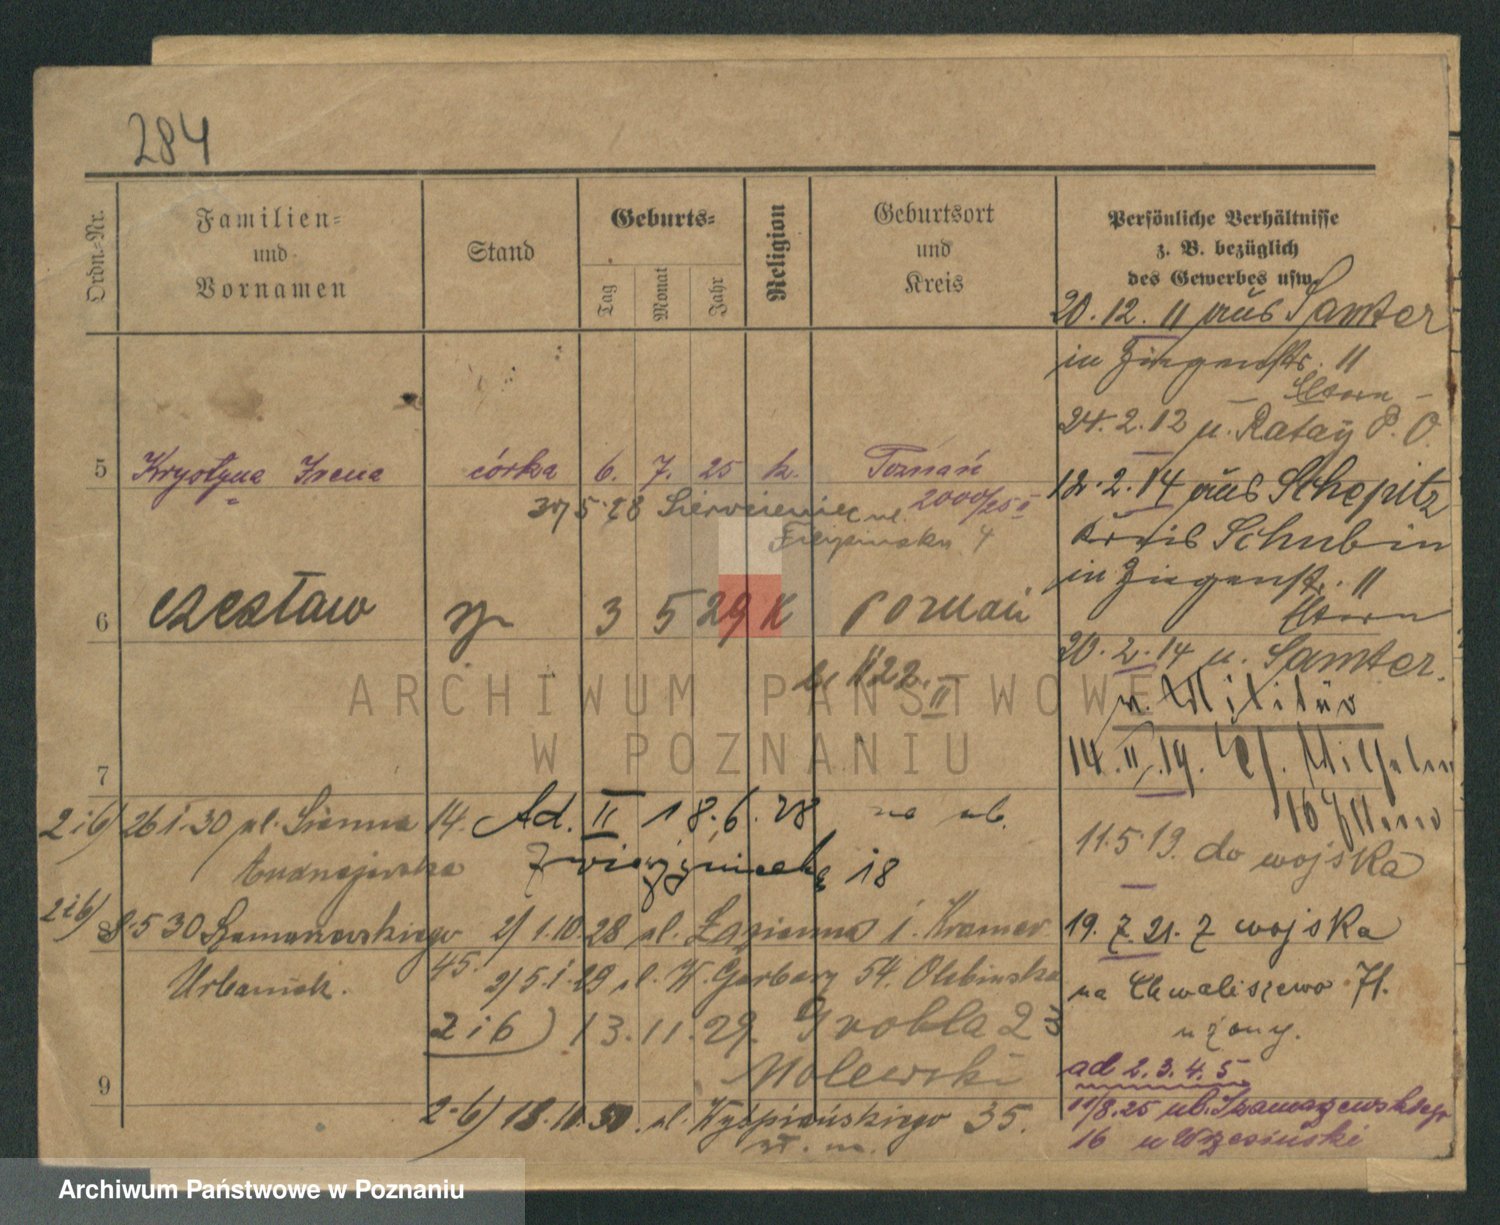 284
Ordn.-Nr.
Familien-
und
Vornamen
Stand
Geburts-
Tag
Monat
Jahr
Religion
Geburtsort
und
Kreis
Persönliche Verhältnisse
z. B. bezüglich
des Gewerbes usw.
20. 12. 11 aus Samter
in Ziegenstr. 11
Eltern
24. 2. 12 n. Ratay P. O.
5 Krystyna Irena córka 6. 7. 25 k. Poznań
2000/25 II
12. 2. 14 aus
Kreis Schubin
in Ziegenstr. 11
Eltern
30/5 28 ul.
4
6 Czesław 3 5 29 K Poznań
1122
II
20. 2. 14 n. Samter.
n. Militär
14. II. 19.
16
7
2 i 6) 26 1. 30 ul. Sienna 14.
Ad. II 18. 6. 28 na ul.
Zwierzyniecką 18
11. 5. 19. do wojska
2 i 6)
8 8. 5 30 Szamarzewskiego
45.
Urbaniak.
2) 1. 10. 28 ul. Łazienna 1. Kramer
2) 5. 1. 29 ul. W. Garbary 54.
2 i 6) 13. 11. 29. Grobla 23
19. 7. 21. z wojska
na Chwaliszewo 71.
u żony.
ad 2. 3. 4. 5
11/8. 25 ul. Szamarzewskiego
16 u Wrzesiński
9
2-6) 18. 10. 30. ul. Wyspiańskiego 35.
ARCHIWUM PAŃSTWOWE
W POZNANIU
Archiwum Państwowe w Poznaniu